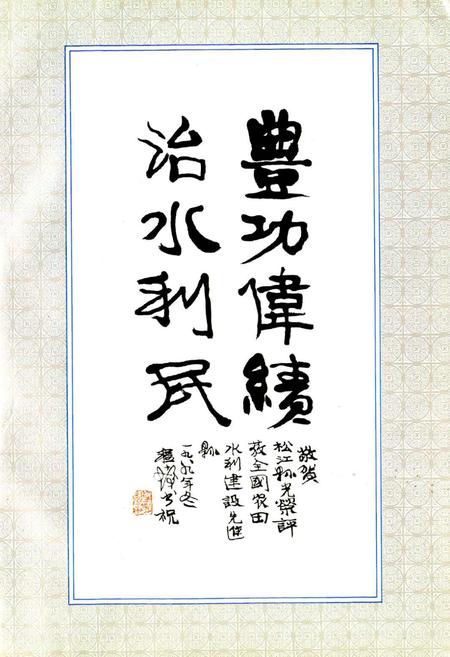 豐功偉績
治水利民
敬贺
松江縣光榮評
为全國农田
水利建設先進
縣
一九八九年冬
书祝